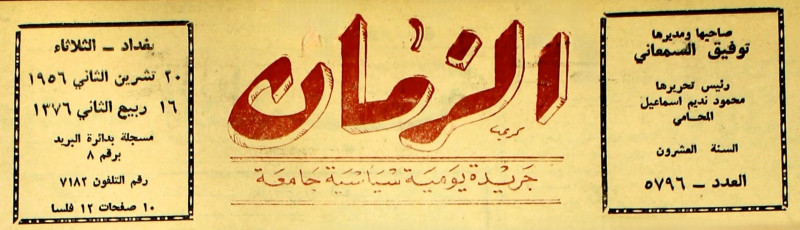 صاحبها ومديرها
توفيق السمعاني
رئيس تحريرها
محمود نديم اسماعيل
المحامي
السنة العشرون
العدد – ٥٧٩٦
الزمان
جريدة يومية سياسية جامعة
بغداد – الثلاثاء
٢٠ تشرين الثاني ١٩٥٦
١٦ ربيع الثاني ١٣٧٦
مسجلة بدائرة البريد
برقم ٨
رقم التلفون ٧١٨٢
١٠ صفحات ١٢ فلسا